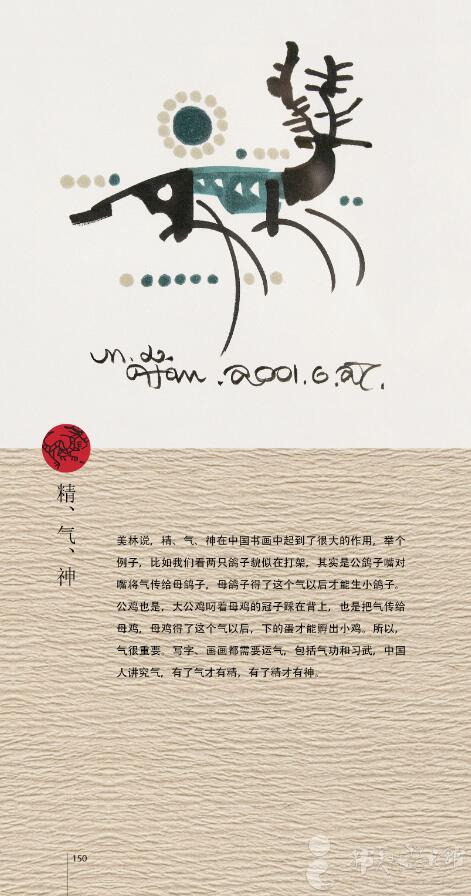 2001.6.
精、气、神
美林说，精、气、神在中国书画中起到了很大的作用，举个
例子，比如我们看两只鸽子貌似在打架，其实是公鸽子嘴对
嘴将气传给母鸽子，母鸽子得了这个气以后才能生小鸽子。
公鸡也是，大公鸡叼着母鸡的冠子踩在背上，也是把气传给
母鸡，母鸡得了这个气以后，下的蛋才能孵出小鸡。所以，
气很重要，写字、画画都需要运气，包括气功和习武，中国
人讲究气，有了气才有精，有了精才有神。
150